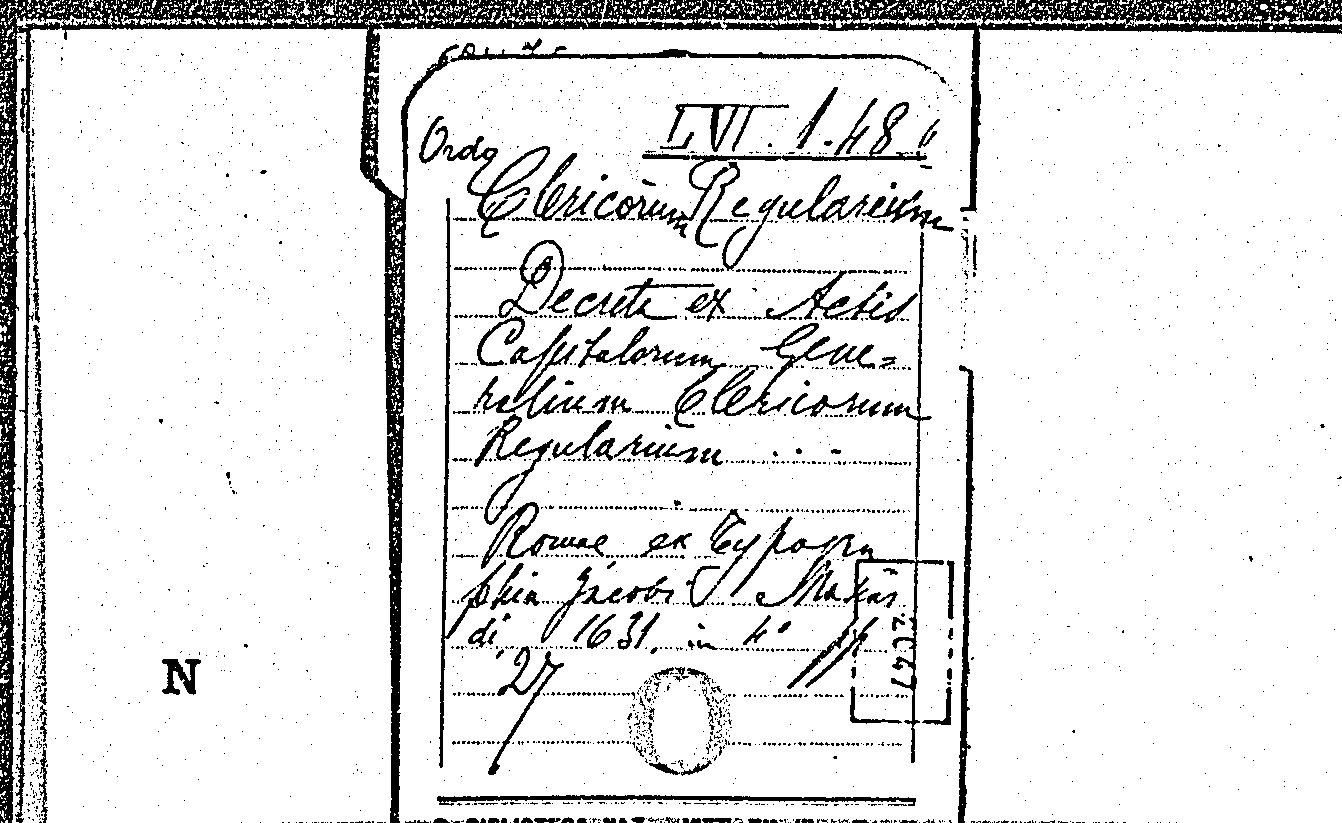 LVI.1.48
Ordo
Clericorum Regularium
Decreta ex Actis
Capitulorum Gene=
ralium Clericorum
Regularium ...
Romae ex Typogra
phia Jacobi Mascar
di 1631. in 4° pp
27
N